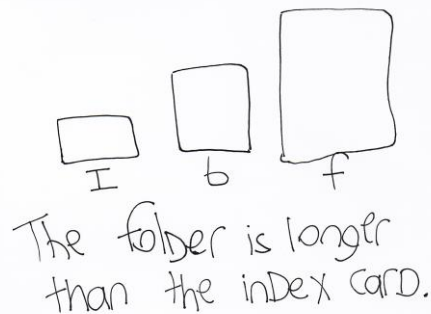 I b f
The folDer is longer
than the inDex carD.